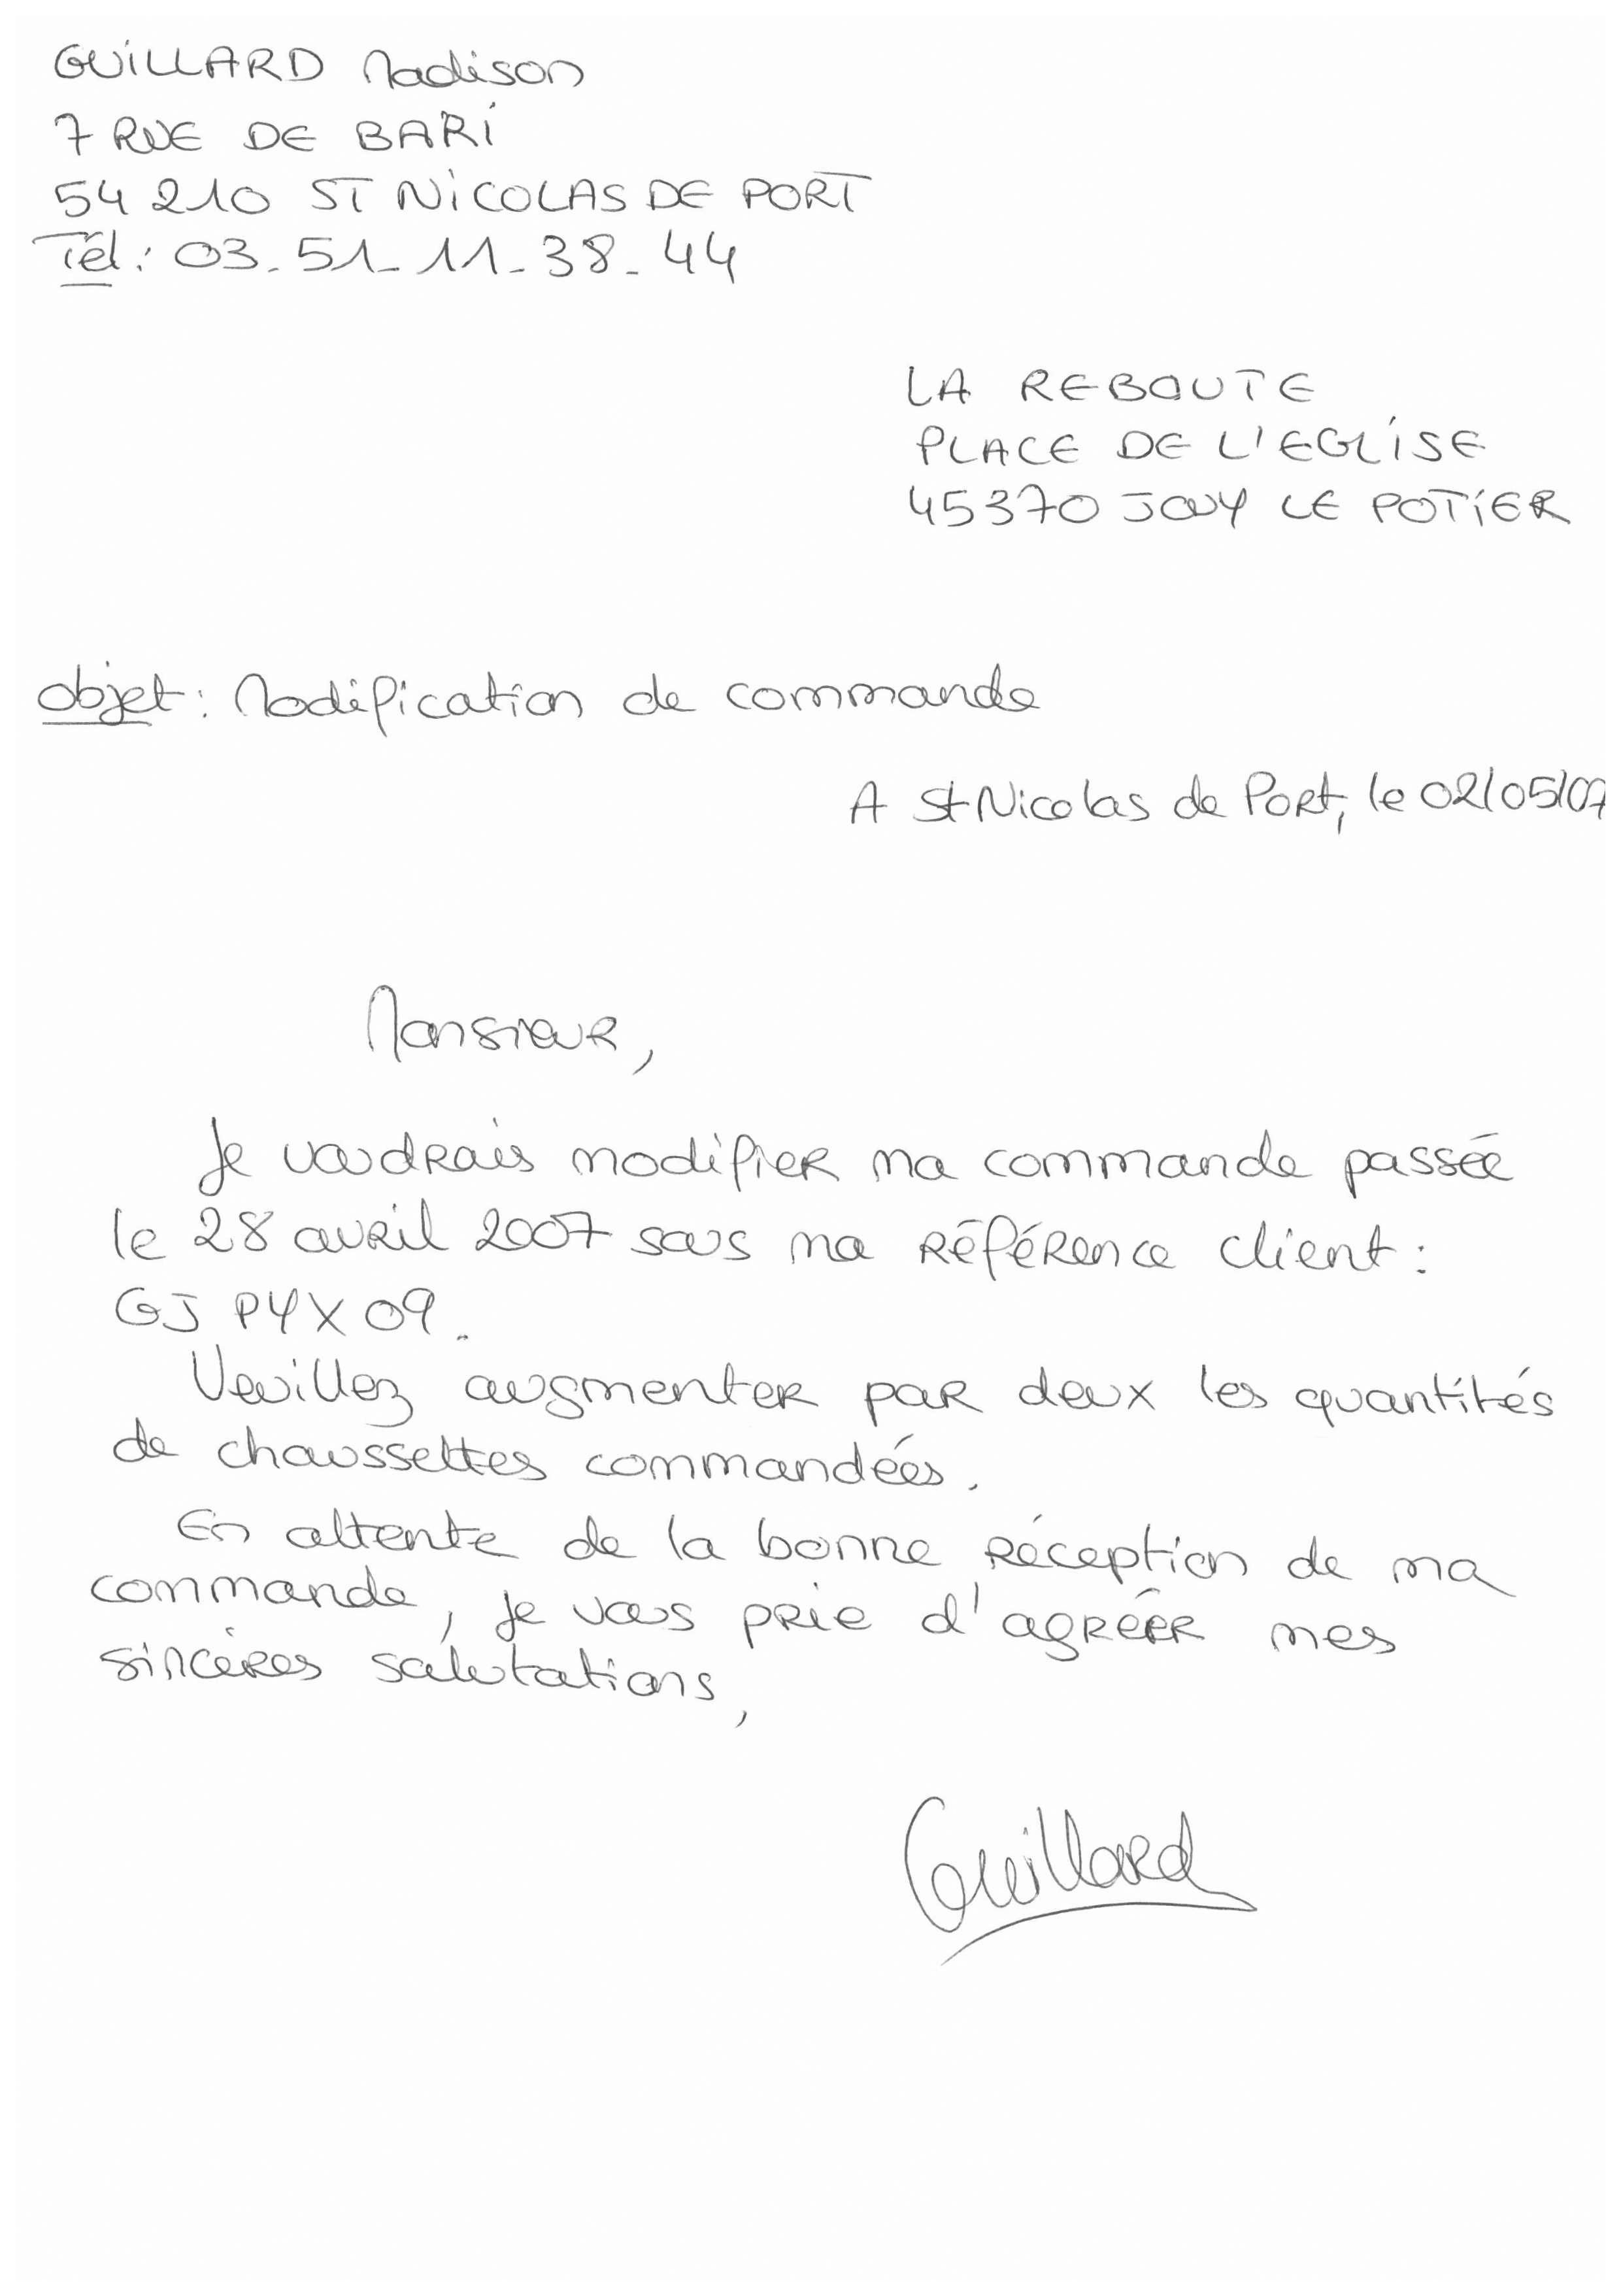 GUILLARD Madison
7 RUE DE BARI
54 210 ST NICOLAS DE PORT
Tél : 03.51.11.38.44
LA REBOUTE
PLACE DE L'EGLISE
45370 JOUY LE POTIER
objet : Modification de commande
A St Nicolas de Port, le 02/05/07
Monsieur,
Je voudrais modifier ma commande passée
le 28 avril 2007 sous ma référence client :
GJ PYX 09.
Veuillez augmenter par deux les quantités
de chaussettes commandées.
En attente de la bonne réception de ma
commande, je vous prie d'agréer mes
sincères salutations,
Guillard